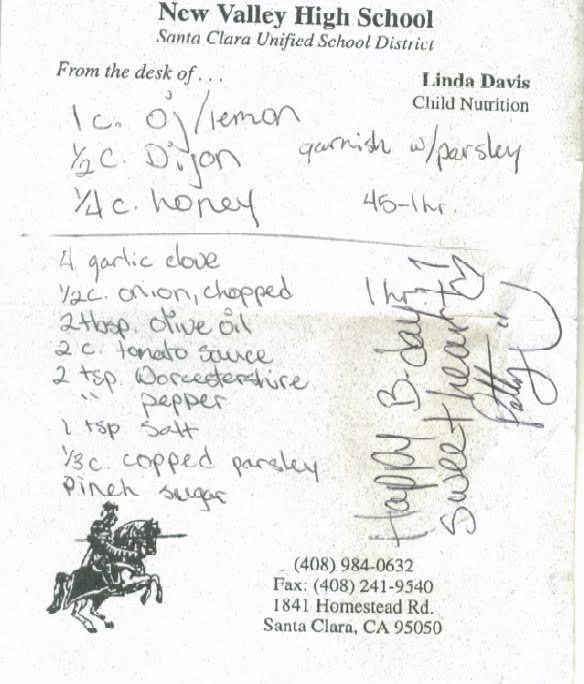 New Valley High School
Santa Clara Unified School District
From the desk of . . .
Linda Davis
Child Nutrition
1 c. oj/lemon
1/2 c. Dijon
1/4 c. honey
garnish w/parsley
45-1hr.
4 garlic clove
1/2c. onion, chopped
2 tbsp. olive oil
2 c. tomato sauce
2 tsp. Worcestershire
" pepper
1 tsp salt
1/3 c. copped parsley
pinch sugar
1 hr
Happy B-day!
Sweetheart
Patty
(408) 984-0632
Fax: (408) 241-9540
1841 Homestead Rd.
Santa Clara, CA 95050